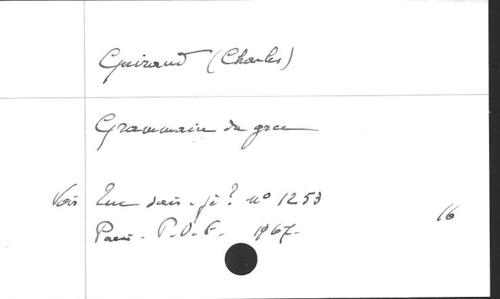 Guiraud (Charles)
Grammaire du grec
Voir Que sais-je? nº 1253
Paris - P.U.F. 1967-
16